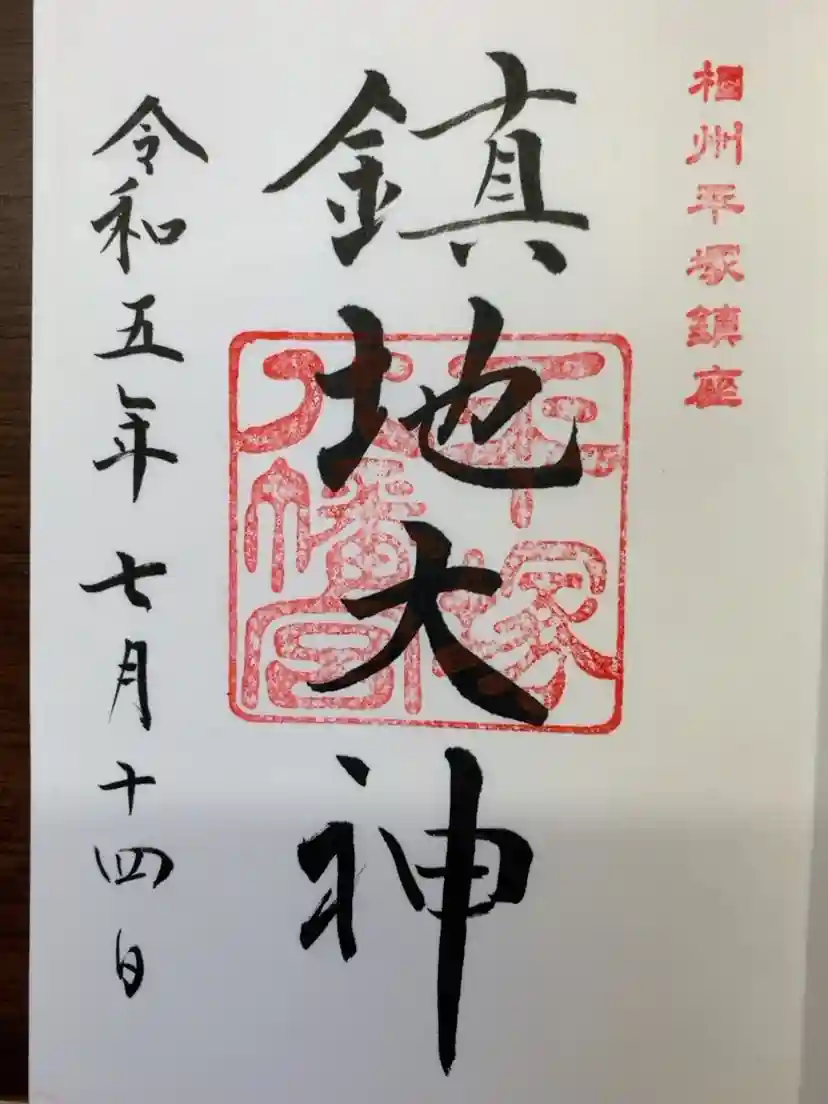 相州平塚鎮座
鎮地大神
平塚
八幡宮
令和五年七月十四日